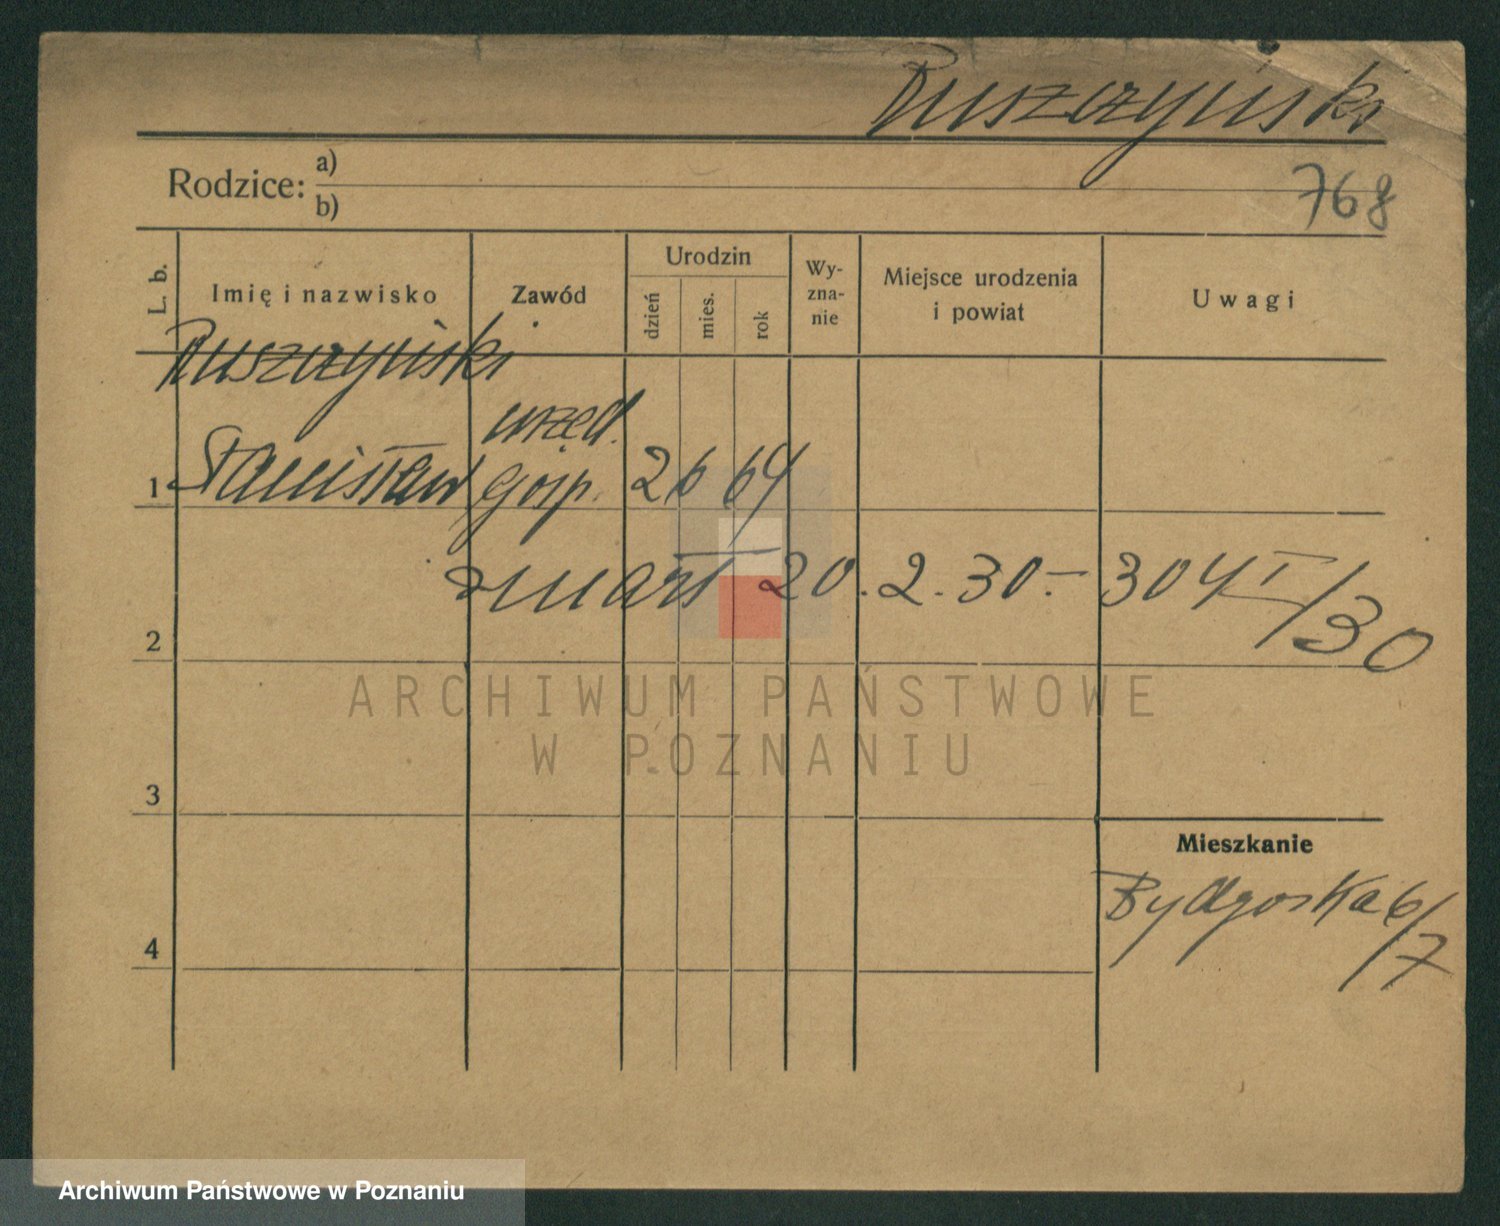 Ruszczyński
Rodzice: a)
b)
768
L. b.
Imię i nazwisko
Zawód
Urodzin
dzień
mies.
rok
Wy-
zna-
nie
Miejsce urodzenia
i powiat
Uwagi
Ruszczyński
urzęd.
1 Stanisław gosp. 2 6 64
zmarł 20.2.30.– 304 I/30
2
ARCHIWUM PAŃSTWOWE
W POZNANIU
3
Mieszkanie
Bydgoska 6/7
4
Archiwum Państwowe w Poznaniu